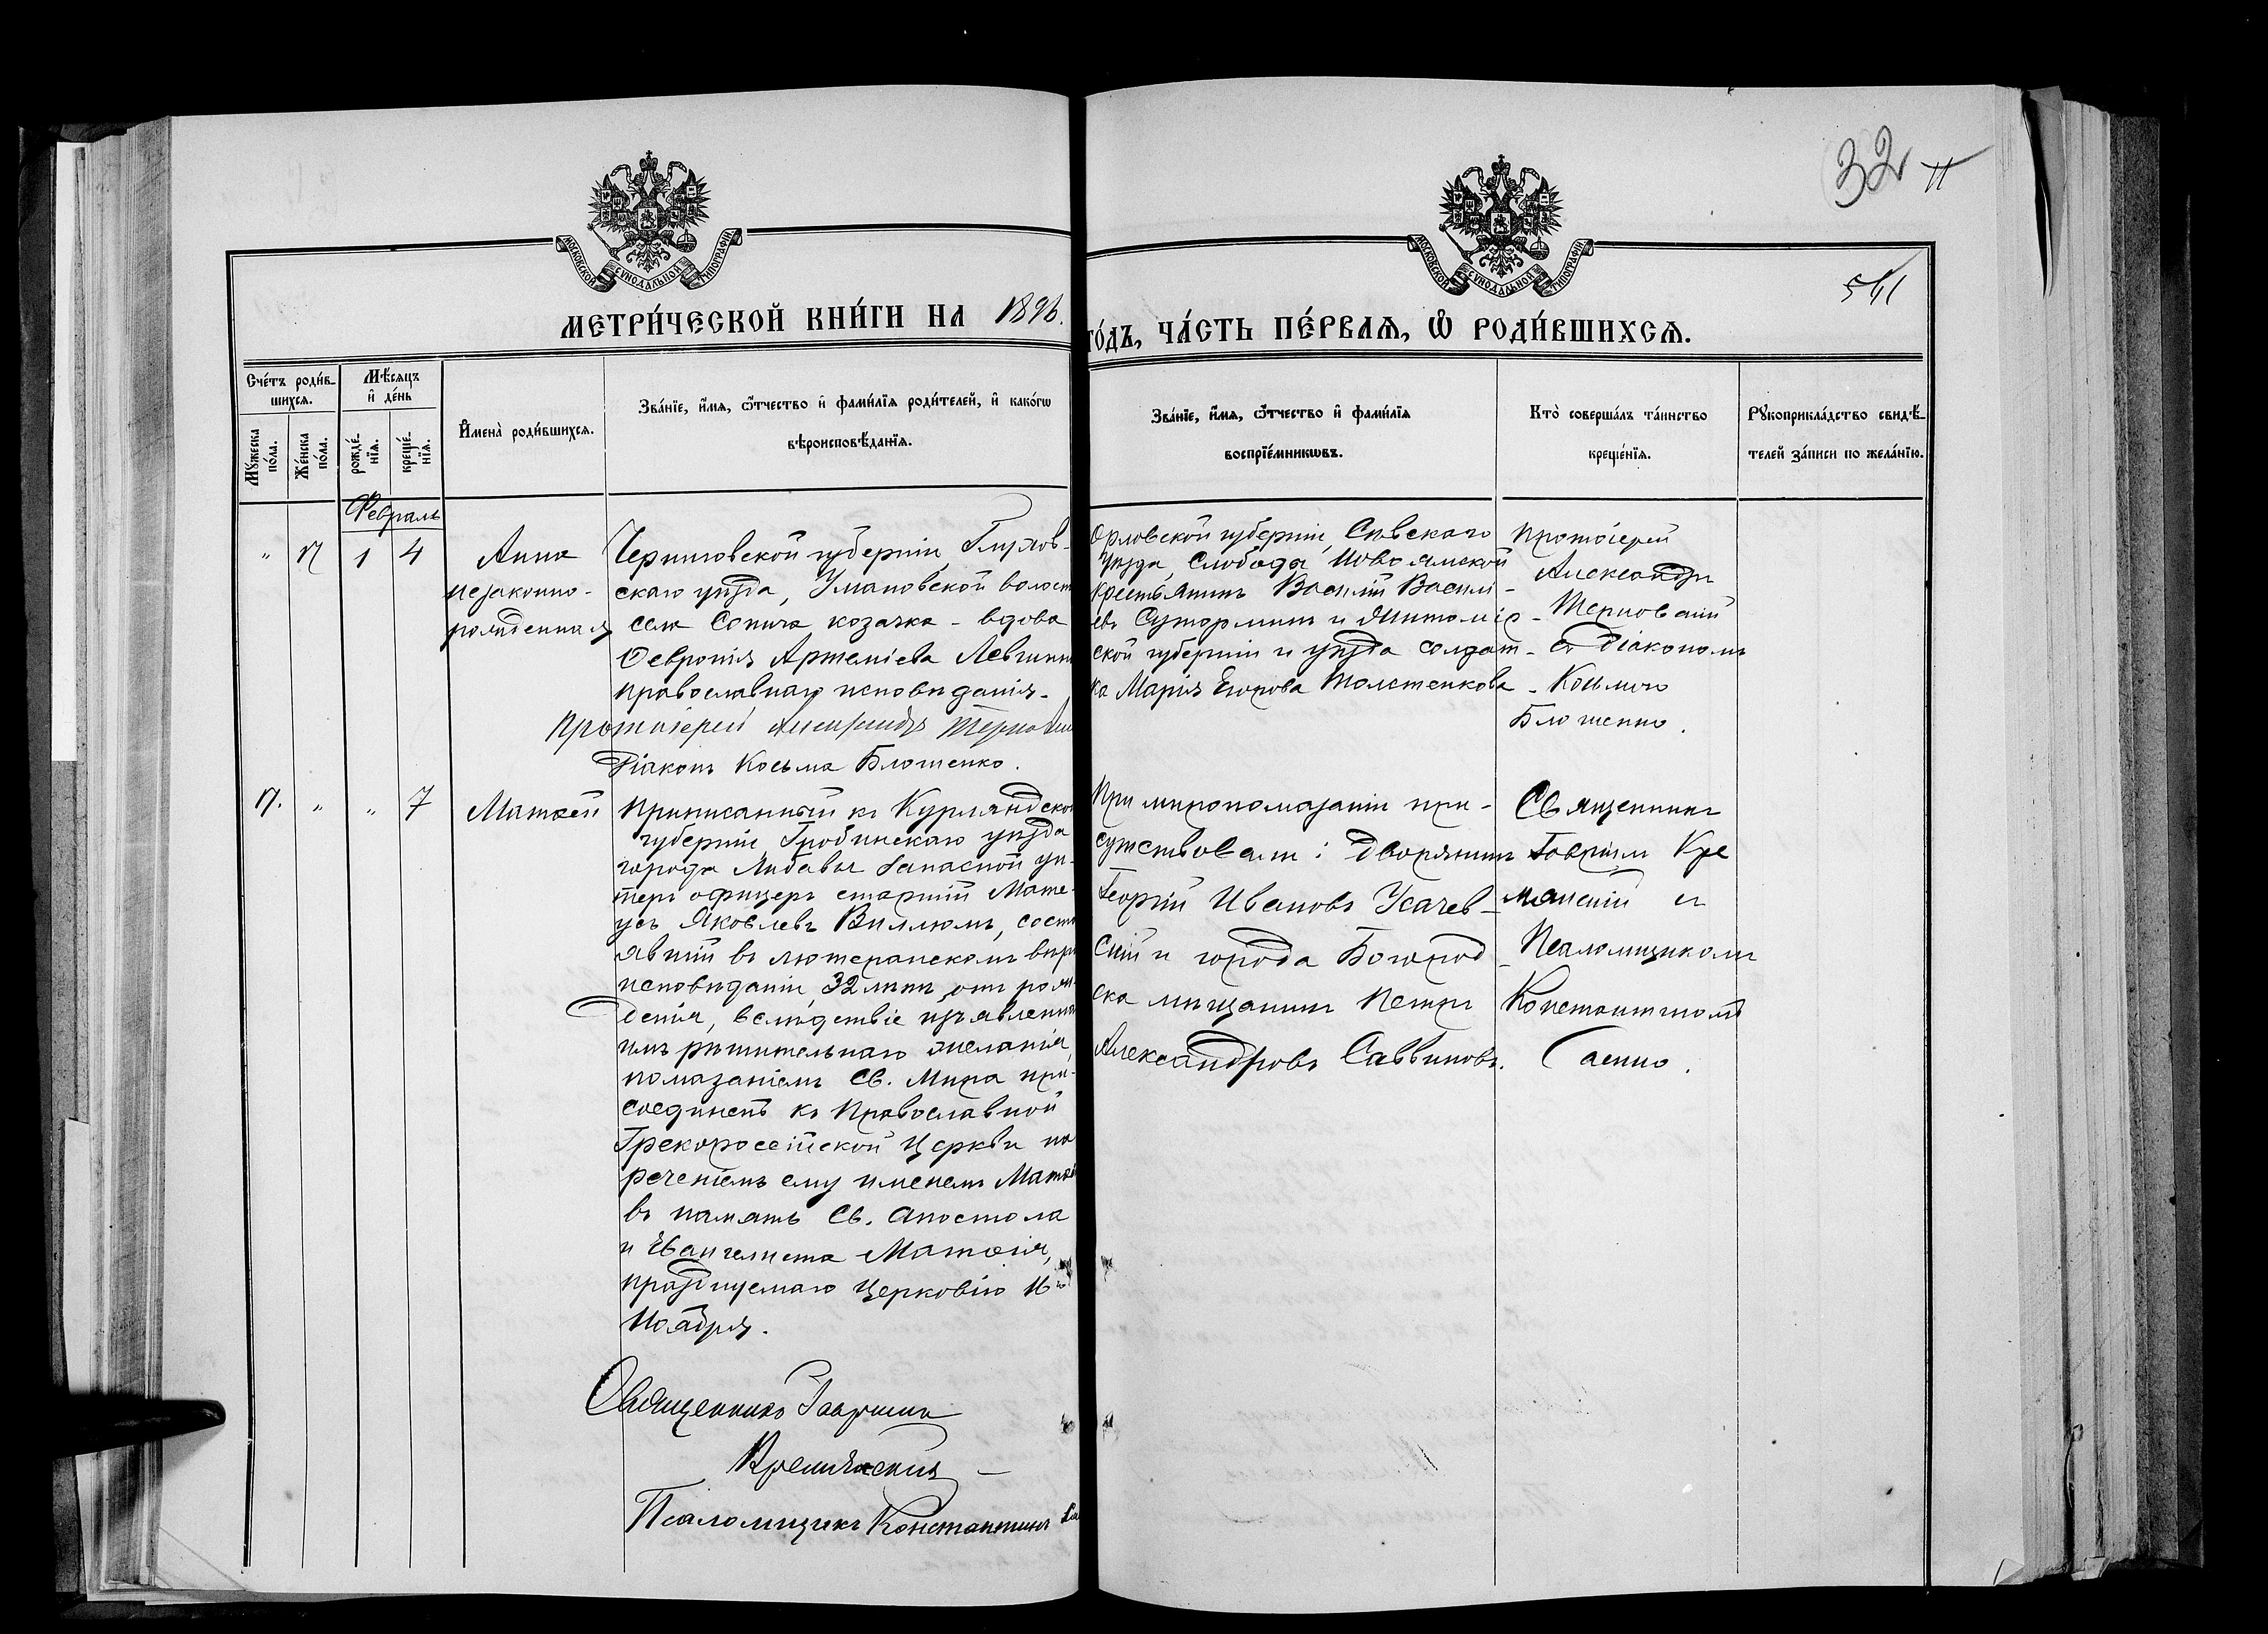 32
541
МОСКОВСКОЙ СѴНОДАЛЬНОЙ ТИПОГРАФІИ
МОСКОВСКОЙ СѴНОДАЛЬНОЙ ТИПОГРАФІИ
МЕТРИ́ЧЕСКОЙ КНИ́ГИ НА 1896.
ГО́ДЪ, ЧА́СТЬ ПЕ́РВАѦ, Ѽ РОДИ́ВШИХСѦ.
Сче́тъ роди́в-
шихсѧ.
Мѣ́сѧцъ
и҆ де́нь
Мꙋ́жеска
по́ла.
Же́нска
по́ла.
рожде́-
нїѧ.
креще́-
нїѧ.
И҆мена̀ роди́вшихсѧ.
Зва́нїе, и҆́мѧ, ѻ҆́тчество и҆ фами́лїѧ роди́телей, и҆ како́гѡ
вѣроисповѣ́данїѧ.
Зва́нїе, и҆́мѧ, ѻ҆́тчество и҆ фами́лїѧ
воспрїе́мникѡвъ.
Кто̀ соверша́лъ та́инство
креще́нїѧ.
Рꙋкоприкла́дство свидѣ́-
телей за́писи по жела́нїю.
Февраль
" 17 1 4
Анна
незаконно-
рожденная
Черниговской губерніи, Глухов-
скаго уѣзда, волост
села Сопича козачка - вдова
Ѳевронія Артеміева
православнаго исповѣданія.
Протоіерей Александръ
Діаконъ Косьма Блошенко.
Орловской губерніи, Сѣвскаго
уѣзда, Слободы Ново ямской
крестьянинъ Василій Василі-
евъ Сутормин и Житомір-
ской губерніи и уѣзда солдат-
ка Марія Егорова Толстенкова
Протоіерей
Александръ
Терновскій
съ Діакономъ
Косьмою
Блошенко.
17. " " 7
Матѳей
Приписанный къ Курляндской
губерніи Гробинскаго уѣзда
города Либавы запасной ун-
теръ офицеръ старшій Мате-
усъ Яковлевъ Виллюмъ, состо
явшій въ лютеранскомъ вѣро
исповѣданіи, 32 лѣтъ отъ рож-
денія, вслѣдствіе изъявленна
имъ рѣшительнаго желанія,
помазаніемъ Св. Мира при-
соединенъ къ Православной
Грекороссійской Церкви на
реченіемъ ему именемъ Матѳей
въ память Св. Апостола
и Евангелиста Матѳея,
празднуемаго Церковію 16го
Ноября.
Священникъ Гавриилъ
Кремянскій
Псаломщикъ Константинъ
При миропомазаніи при-
сутствовали: Дворянинъ
Георгій Ивановъ Усачев-
скій и города Богород
ска мѣщанинъ Петръ
Александровъ Саввиновъ.
Священникъ
Гавріилъ Кре
мянскій съ
Псаломщикомъ
Константиномъ